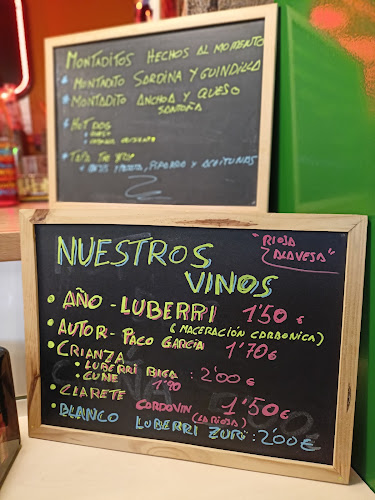 MONTADITOS HECHOS AL MOMENTO
MONTADITO SARDINA Y GUINDILLA
MONTADITO ANCHOA Y QUESO
SANTOÑA
HOT DOG
QUESO
NUESTROS VINOS
"RIOJA
ALAVESA"
• AÑO - LUBERRI 1'50 €
(MACERACIÓN CARBONICA)
• AUTOR - PACO GARCÍA 1'70 €
• CRIANZA
• LUBERRI BIGA : 2'00 €
• CUNE 1'90
• CLARETE CORDOVIN (LA RIOJA) 1'50 €
• BLANCO LUBERRI ZURI : 2'00 €